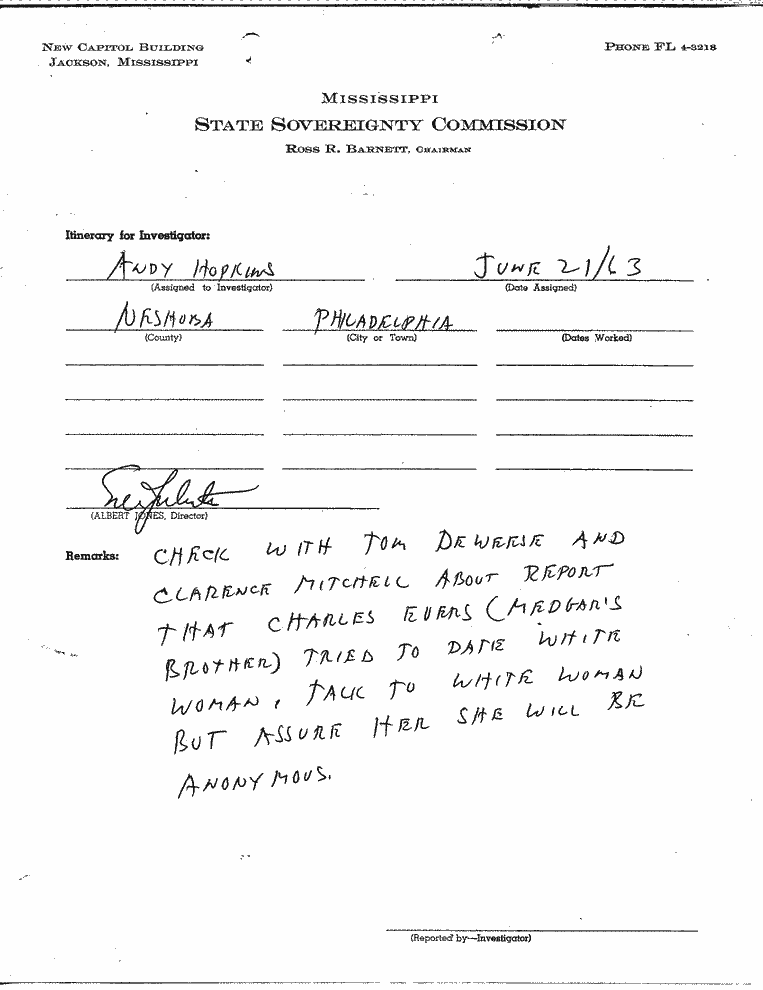 NEW CAPITOL BUILDING
JACKSON, MISSISSIPPI
PHONE FL 4-3218
MISSISSIPPI
STATE SOVEREIGNTY COMMISSION
ROSS R. BARNETT, CHAIRMAN
Itinerary for Investigator:
ANDY HOPKINS JUNE 21/63
(Assigned to Investigator) (Date Assigned)
NESHOBA PHILADELPHIA
(County) (City or Town) (Dates Worked)
(ALBERT JONES, Director)
Remarks: CHECK WITH TOM DEWEESE AND
CLARENCE MITCHELL ABOUT REPORT
THAT CHARLES EVERS (MEDGAR'S
BROTHER) TRIED TO DATE WHITE
WOMAN, TALK TO WHITE WOMAN
BUT ASSURE HER SHE WILL BE
ANONYMOUS.
(Reported by—Investigator)